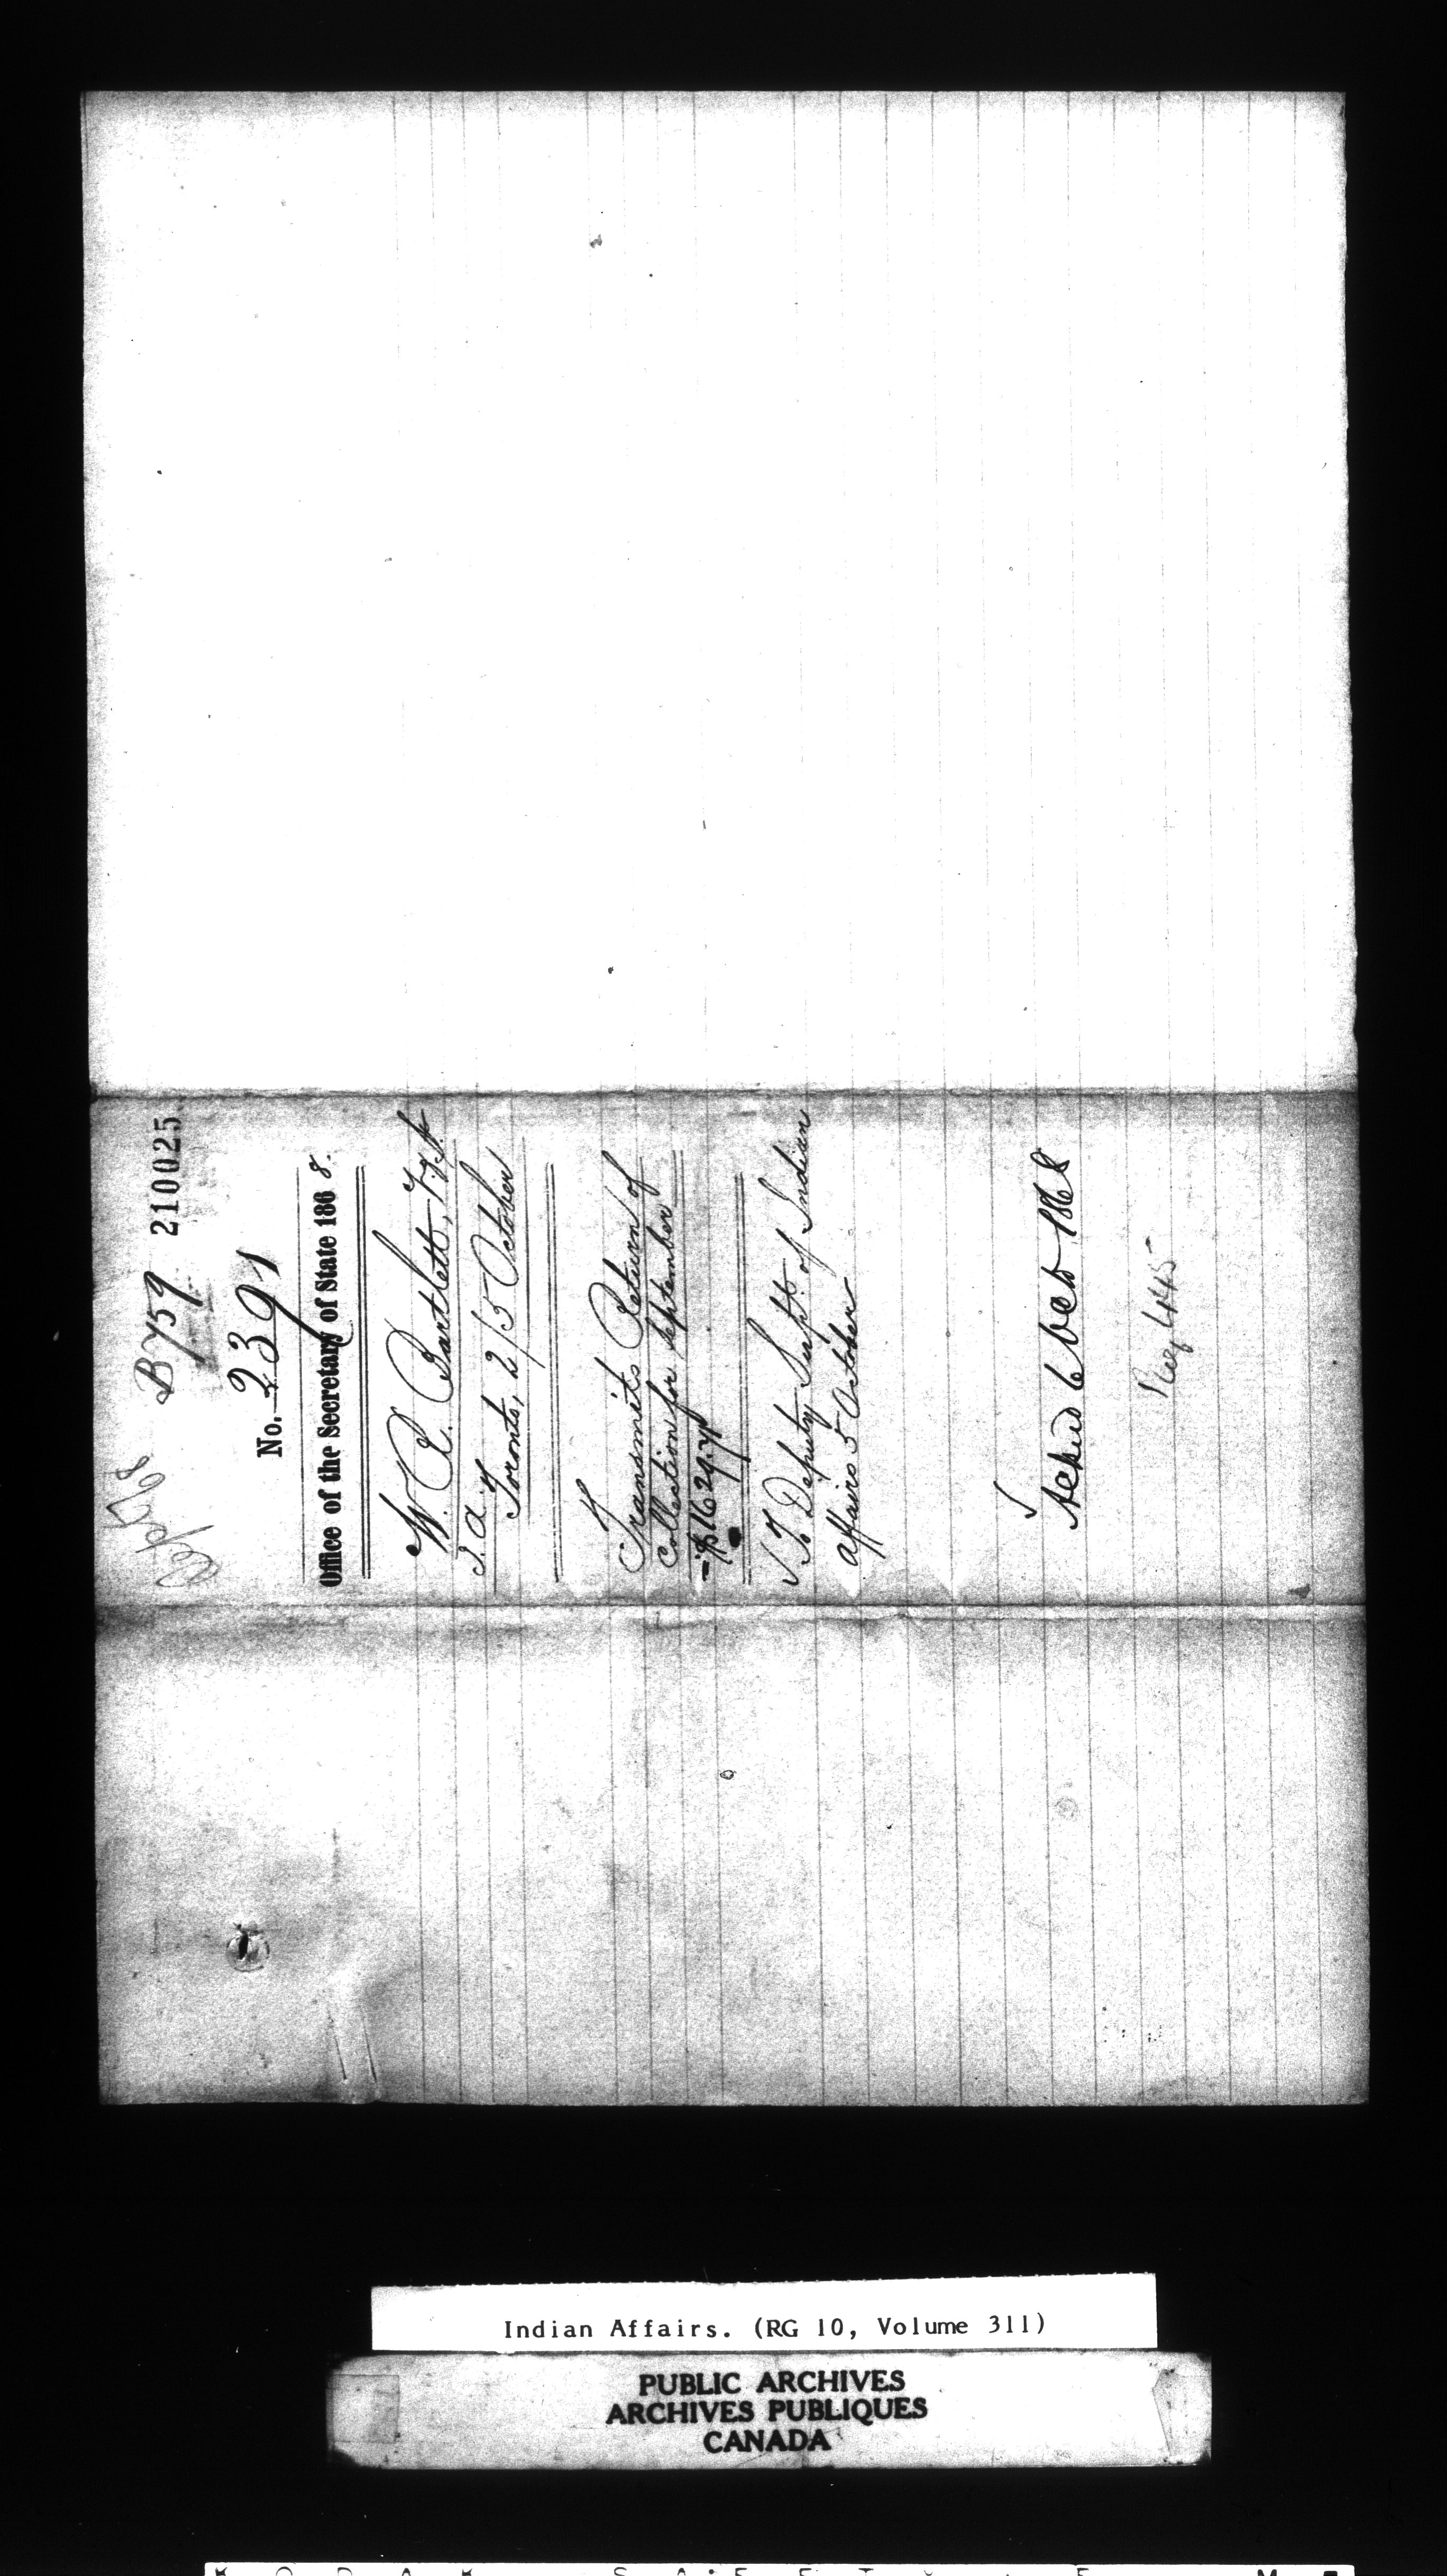 B 759 210025
No. 2391
Office of the Secretary of State 1868.
W. R. Bartlett,
I. A.
Toronto, 2/5 October
Transmits Return of
Collection for September
To Deputy Supt. of Indian
Affairs 5 October
6 Oct 1868
Indian Affairs. (RG 10, Volume 311)
PUBLIC ARCHIVES
ARCHIVES PUBLIQUES
CANADA